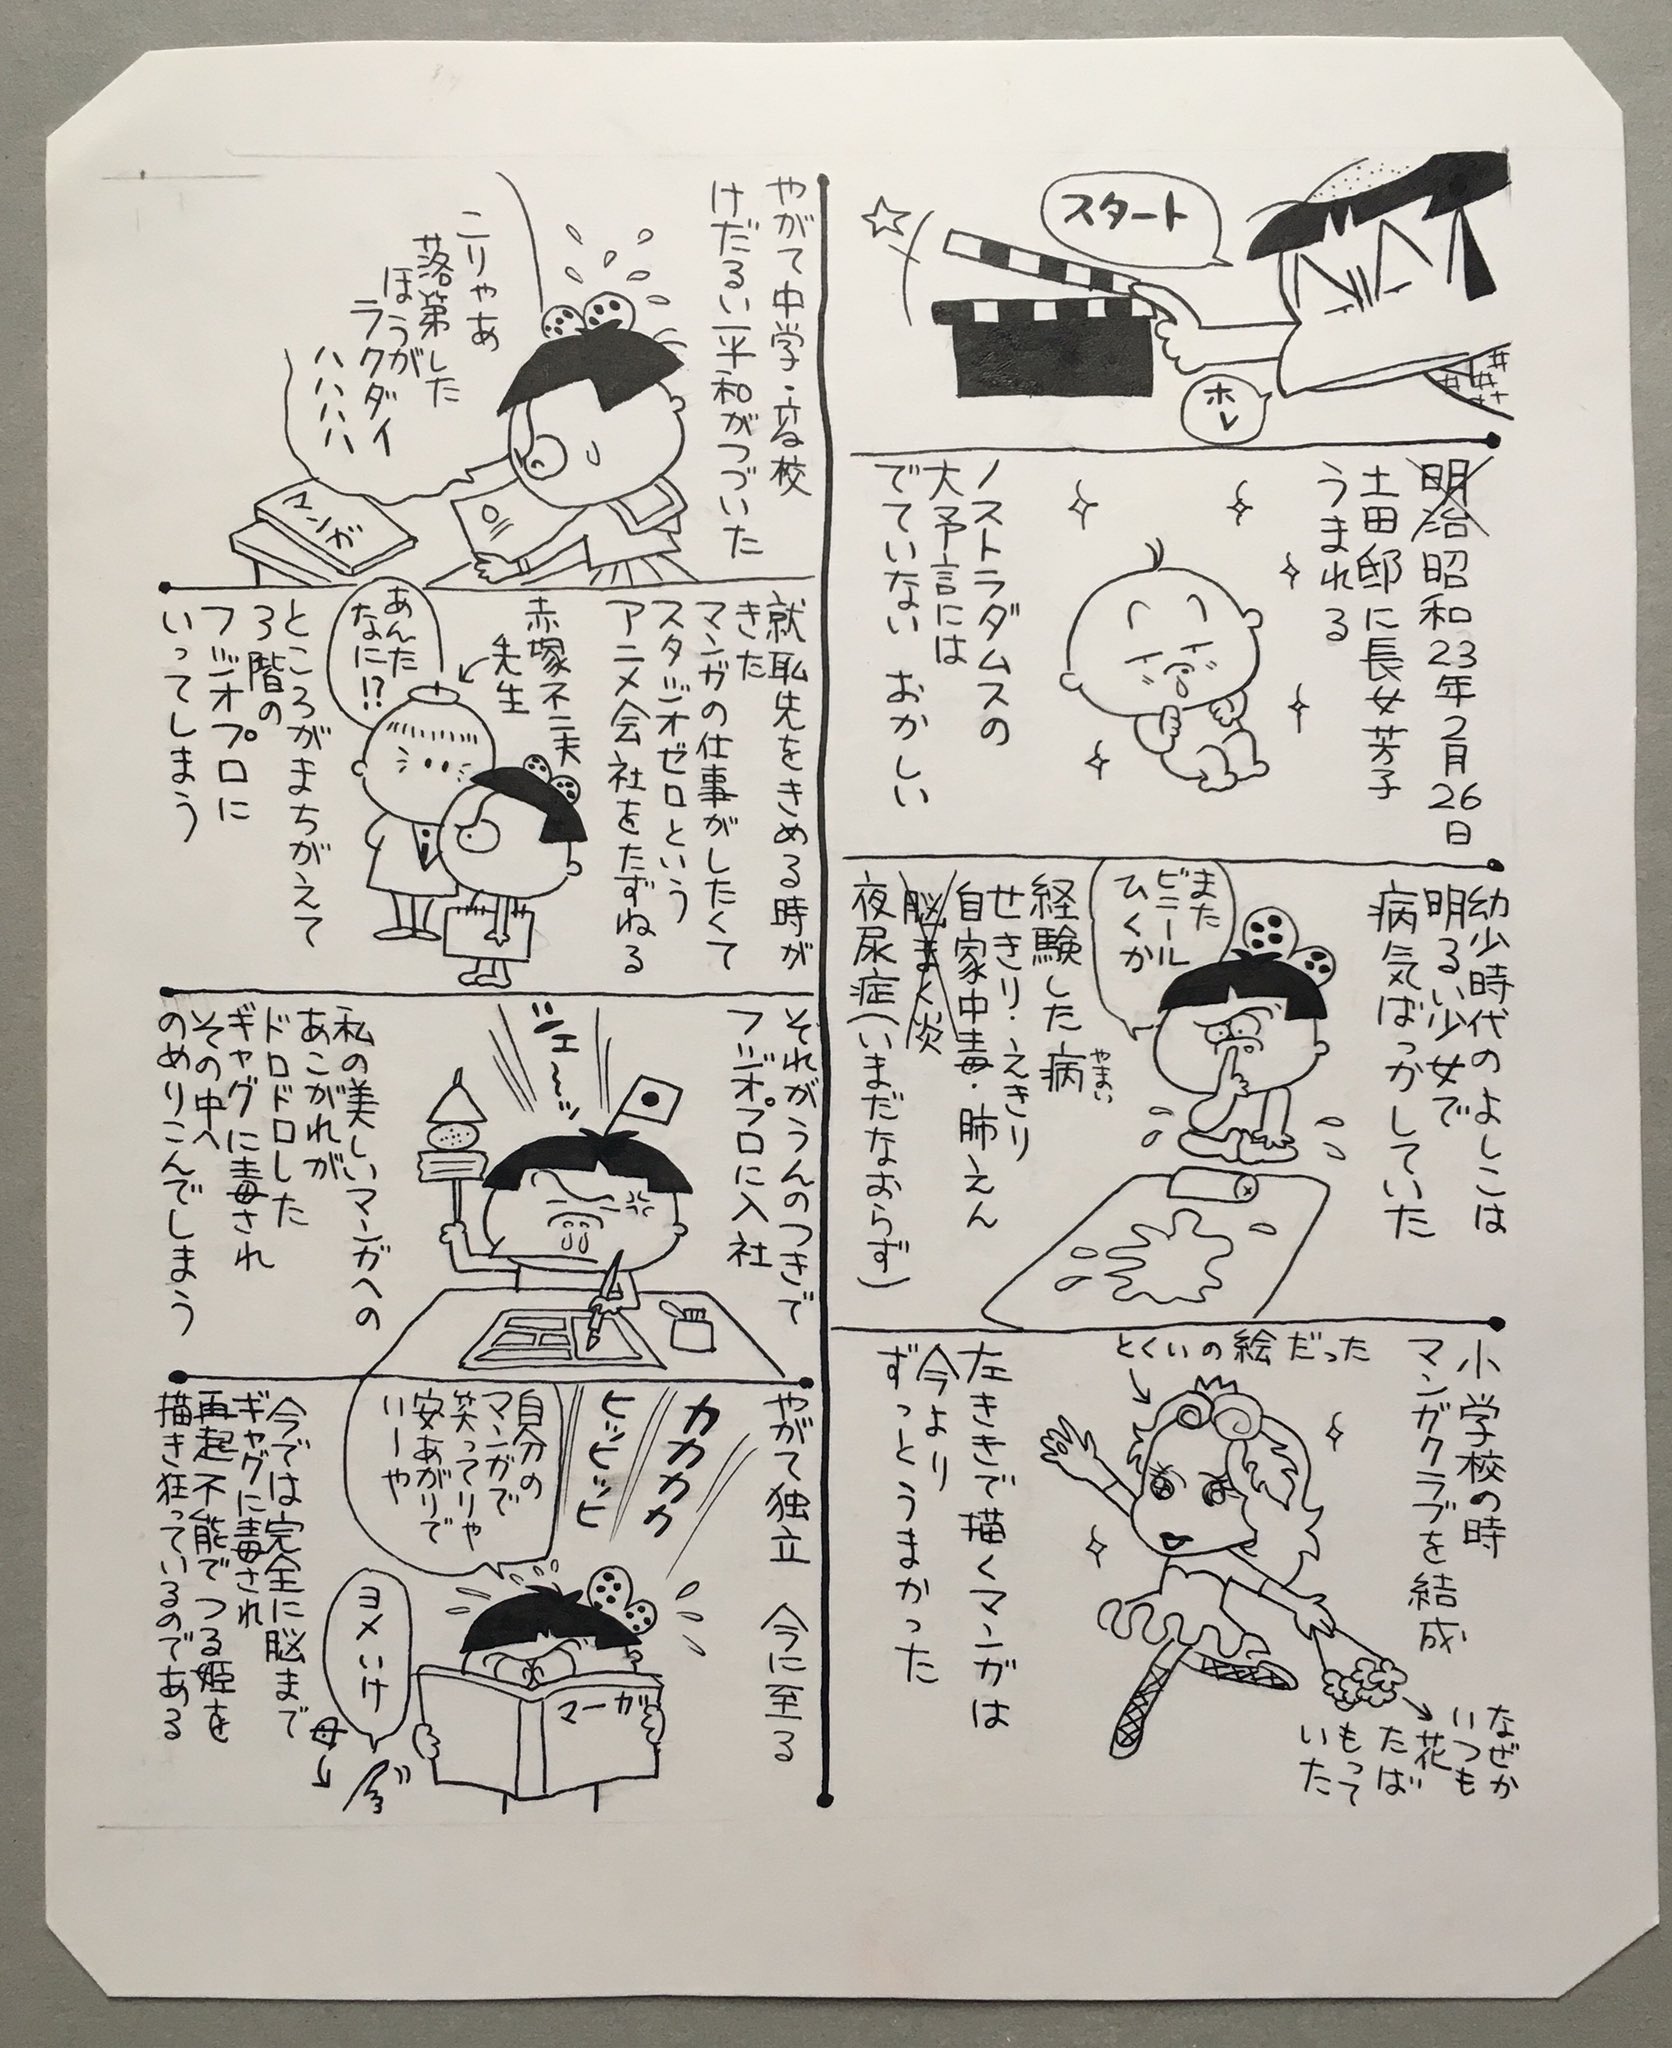 スタート
ホレ
明治昭和23年2月26日
土田邸に長女芳子
うまれる
ノストラダムスの
大予言には
でていない おかしい
幼少時代のよしこは
明るい少女で
病気ばっかしていた
また
ビニール
ひくか
経験した病
やまい
せきり・えきり
自家中毒・肺えん
脳まく炎
夜尿症(いまだなおらず)
小学校の時
マンガクラブを結成
とくいの絵だった
なぜか
いつも
花
たば
もって
いた
左ききで描くマンガは
今より
ずっとうまかった
やがて中学・高校
けだるい平和がつづいた
こりゃあ
落第した
ほうが
ラクダイ
ハハハハ
マンガ
就恥先をきめる時が
きた
マンガの仕事がしたくて
スタジオゼロという
アニメ会社をたずねる
赤塚不二夫
先生
あんた
なに!?
ところがまちがえて
3階の
フジオプロに
いってしまう
それがうんのつきで
フジオプロに入社
シェーッ
私の美しいマンガへの
あこがれが
ドロドロした
ギャグに毒され
その中へ
のめりこんでしまう
やがて独立 今に至る
カカカカ
ヒッヒッヒ
自分の
マンガで
笑ってりゃ
安あがりで
いーや
マーガ
ヨメいけ
母
今では完全に脳まで
ギャグに毒され
再起不能でつる姫を
描き狂っているのである